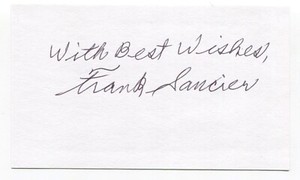 With Best Wishes,
Frank Saucier